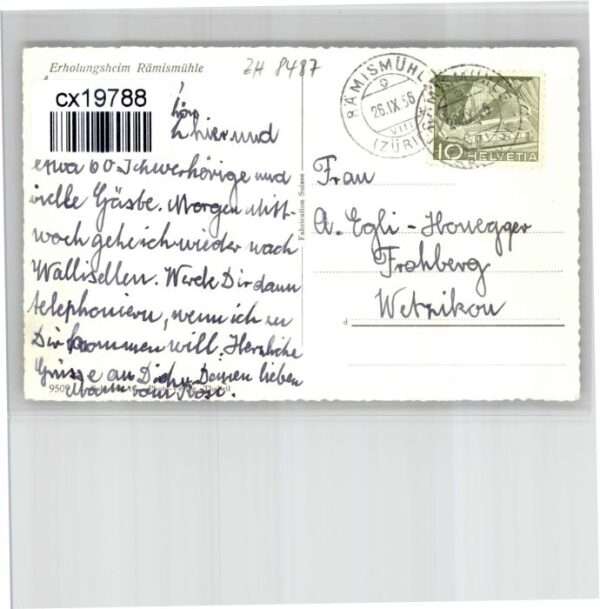 Erholungsheim Rämismühle
ZH 8487
cx19788
hier und
etwa 60 Schwerhörige und
viele Gäste. Morgen Mitt-
woch gehe ich wieder nach
Wallisellen. Werde Dir dann
telephonieren, wenn ich zu
Dir kommen will. Herzliche
Grüsse an Dich u. Deinen lieben
Mann von Rosi.
Fabrication Suisse
RÄMISMÜHLE
26.IX.56
VIII
(ZÜRICH)
10 HELVETIA
Frau
A. Egli-Honegger
Frohberg
Wetzikon